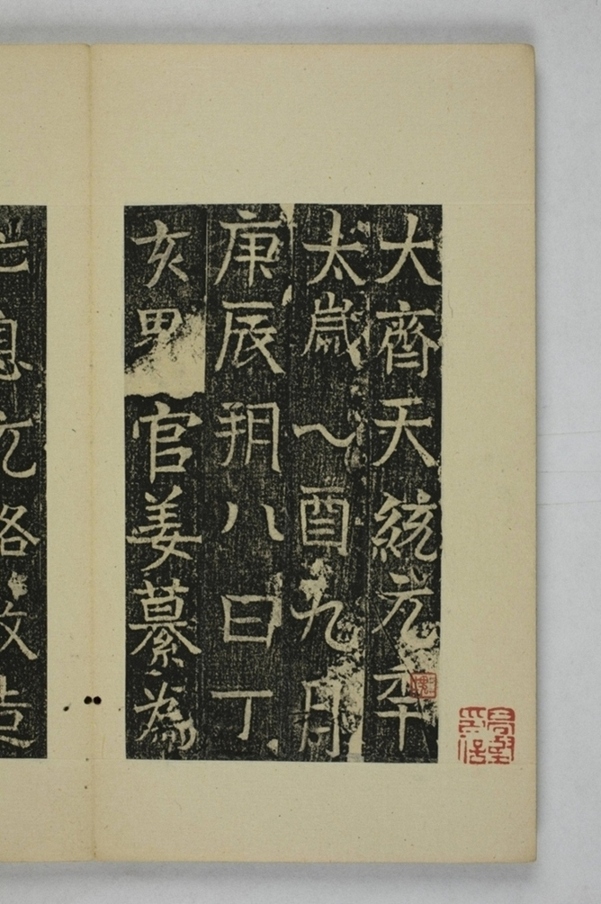 大齊天統元年
太歲乙酉九月
庚辰朔八日丁
亥男官姜纂為
亡息元造